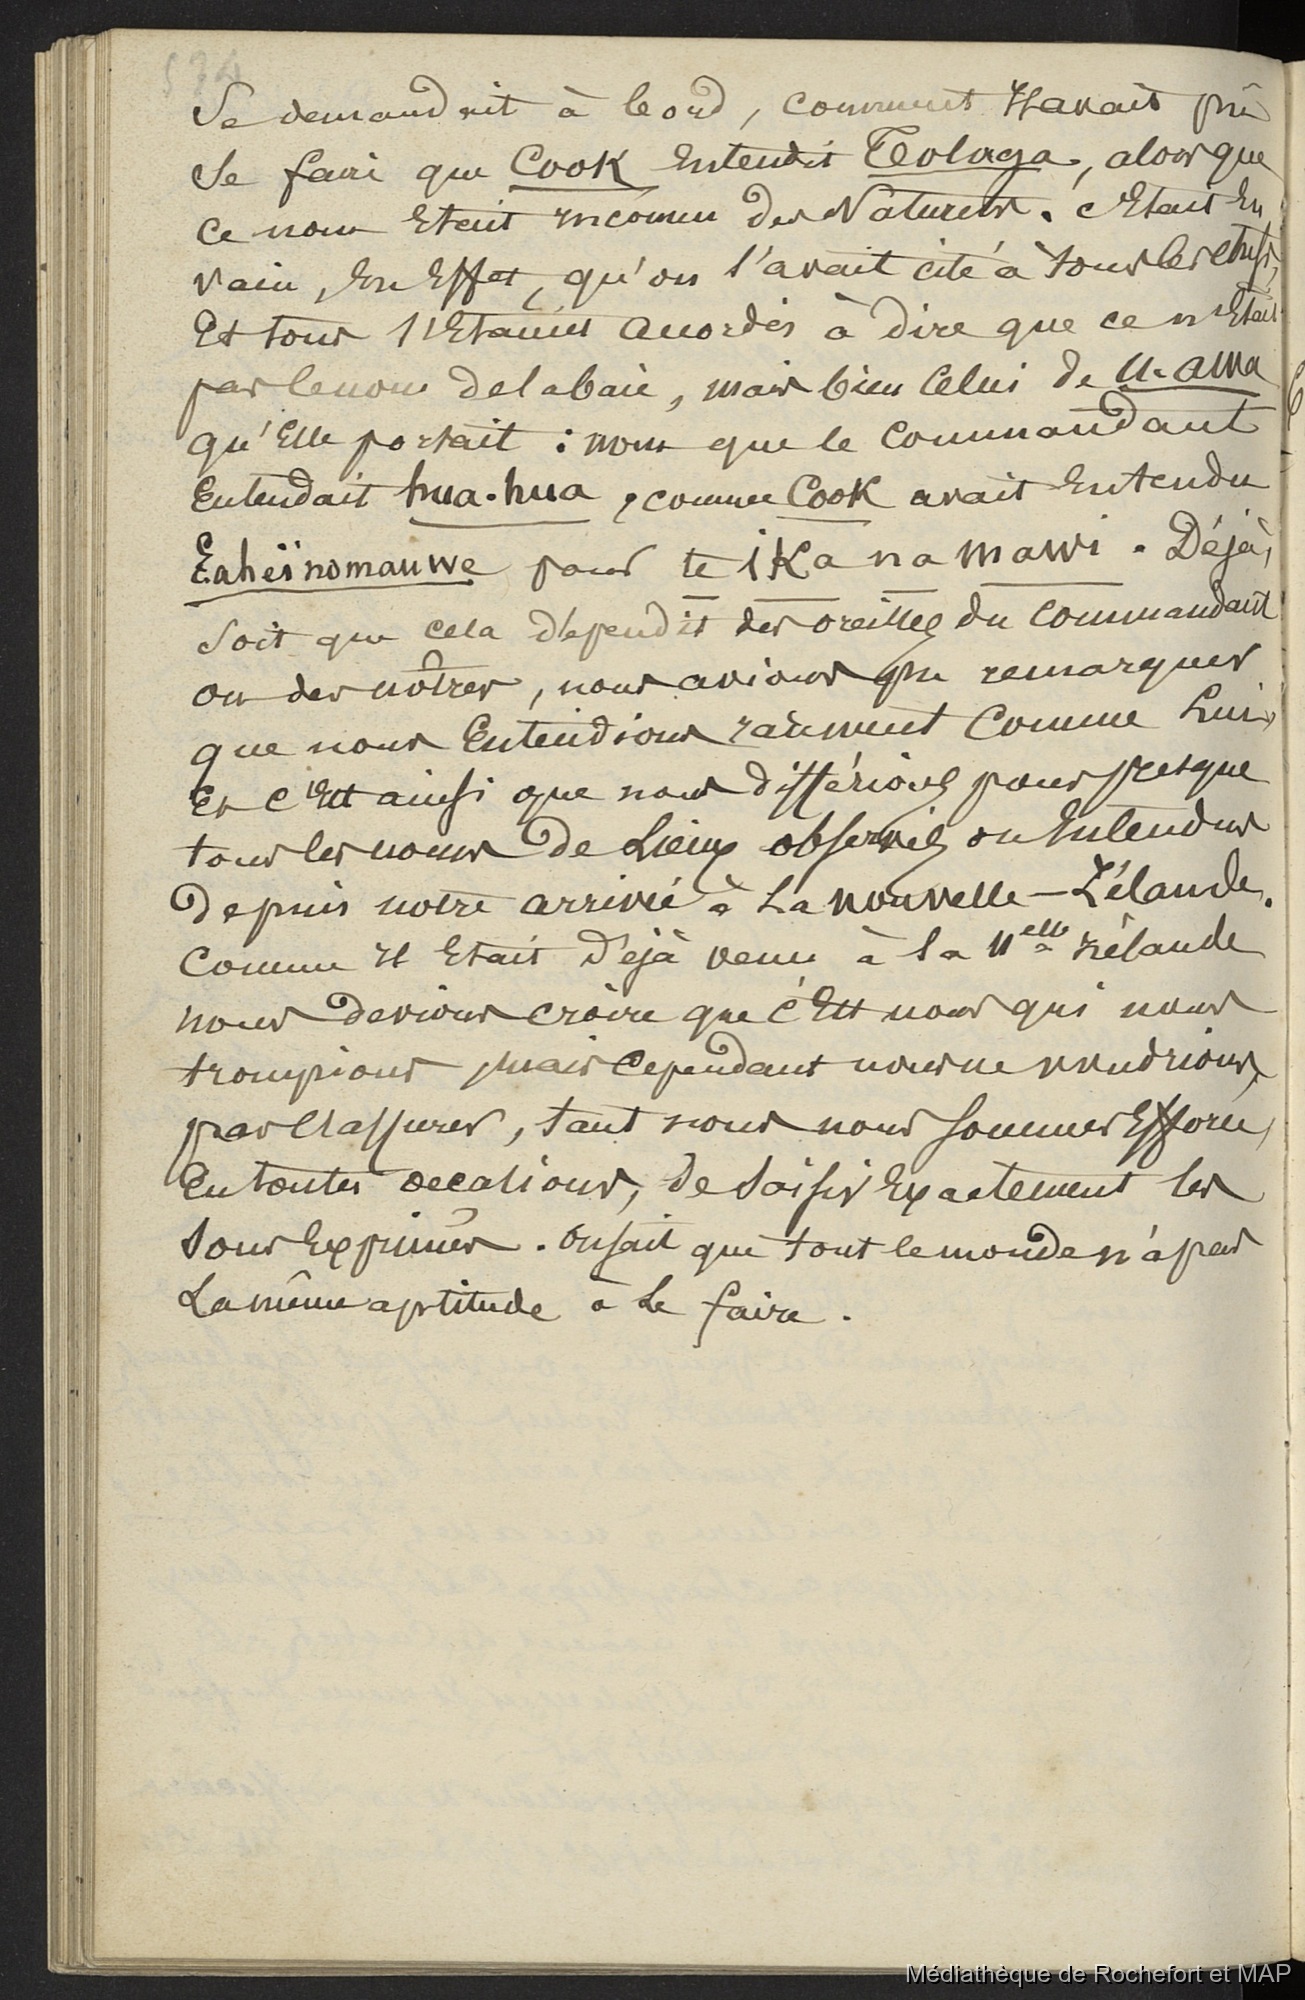 534
Se demandait à bord, comment Il avait pû
se faire que Cook Entendit Tolaga, alors que
ce nom Etait Inconnu des Naturels. C'Etait En
vain, En Effet, qu'on l'avait cité à tous les chefs,
Et tous s'Etaient accordés à dire que ce n'Etait
pas le nom de la baie, mais bien Celui de U-awa
qu'Elle portait : nom que le Commandant
Entendait hua-hua, comme Cook avait Entendu
Eaheïnomauwe pour te iKa na mawi. Déjà,
soit que cela dépendit des oreilles du Commandant
ou des nôtres, nous avions pu remarquer
que nous Entendions rarement Comme Lui,
Et C'Est ainsi que nous différions pour presque
tous les noms de Lieux observés ou Entendus
Depuis notre arrivée à La nouvelle-Zélande.
Comme Il Etait Déjà venu à la Nelle Zélande
nous devions croire que c'Est nous qui nous
trompions, mais cependant nous ne voudrions
pas l'assurer, tant nous nous sommes Efforcés,
En toutes occasions, de saisir Exactement les
sons Exprimés. On sait que tout le monde n'a pas
La même aptitude à Le faire.
Médiathèque de Rochefort et MAP